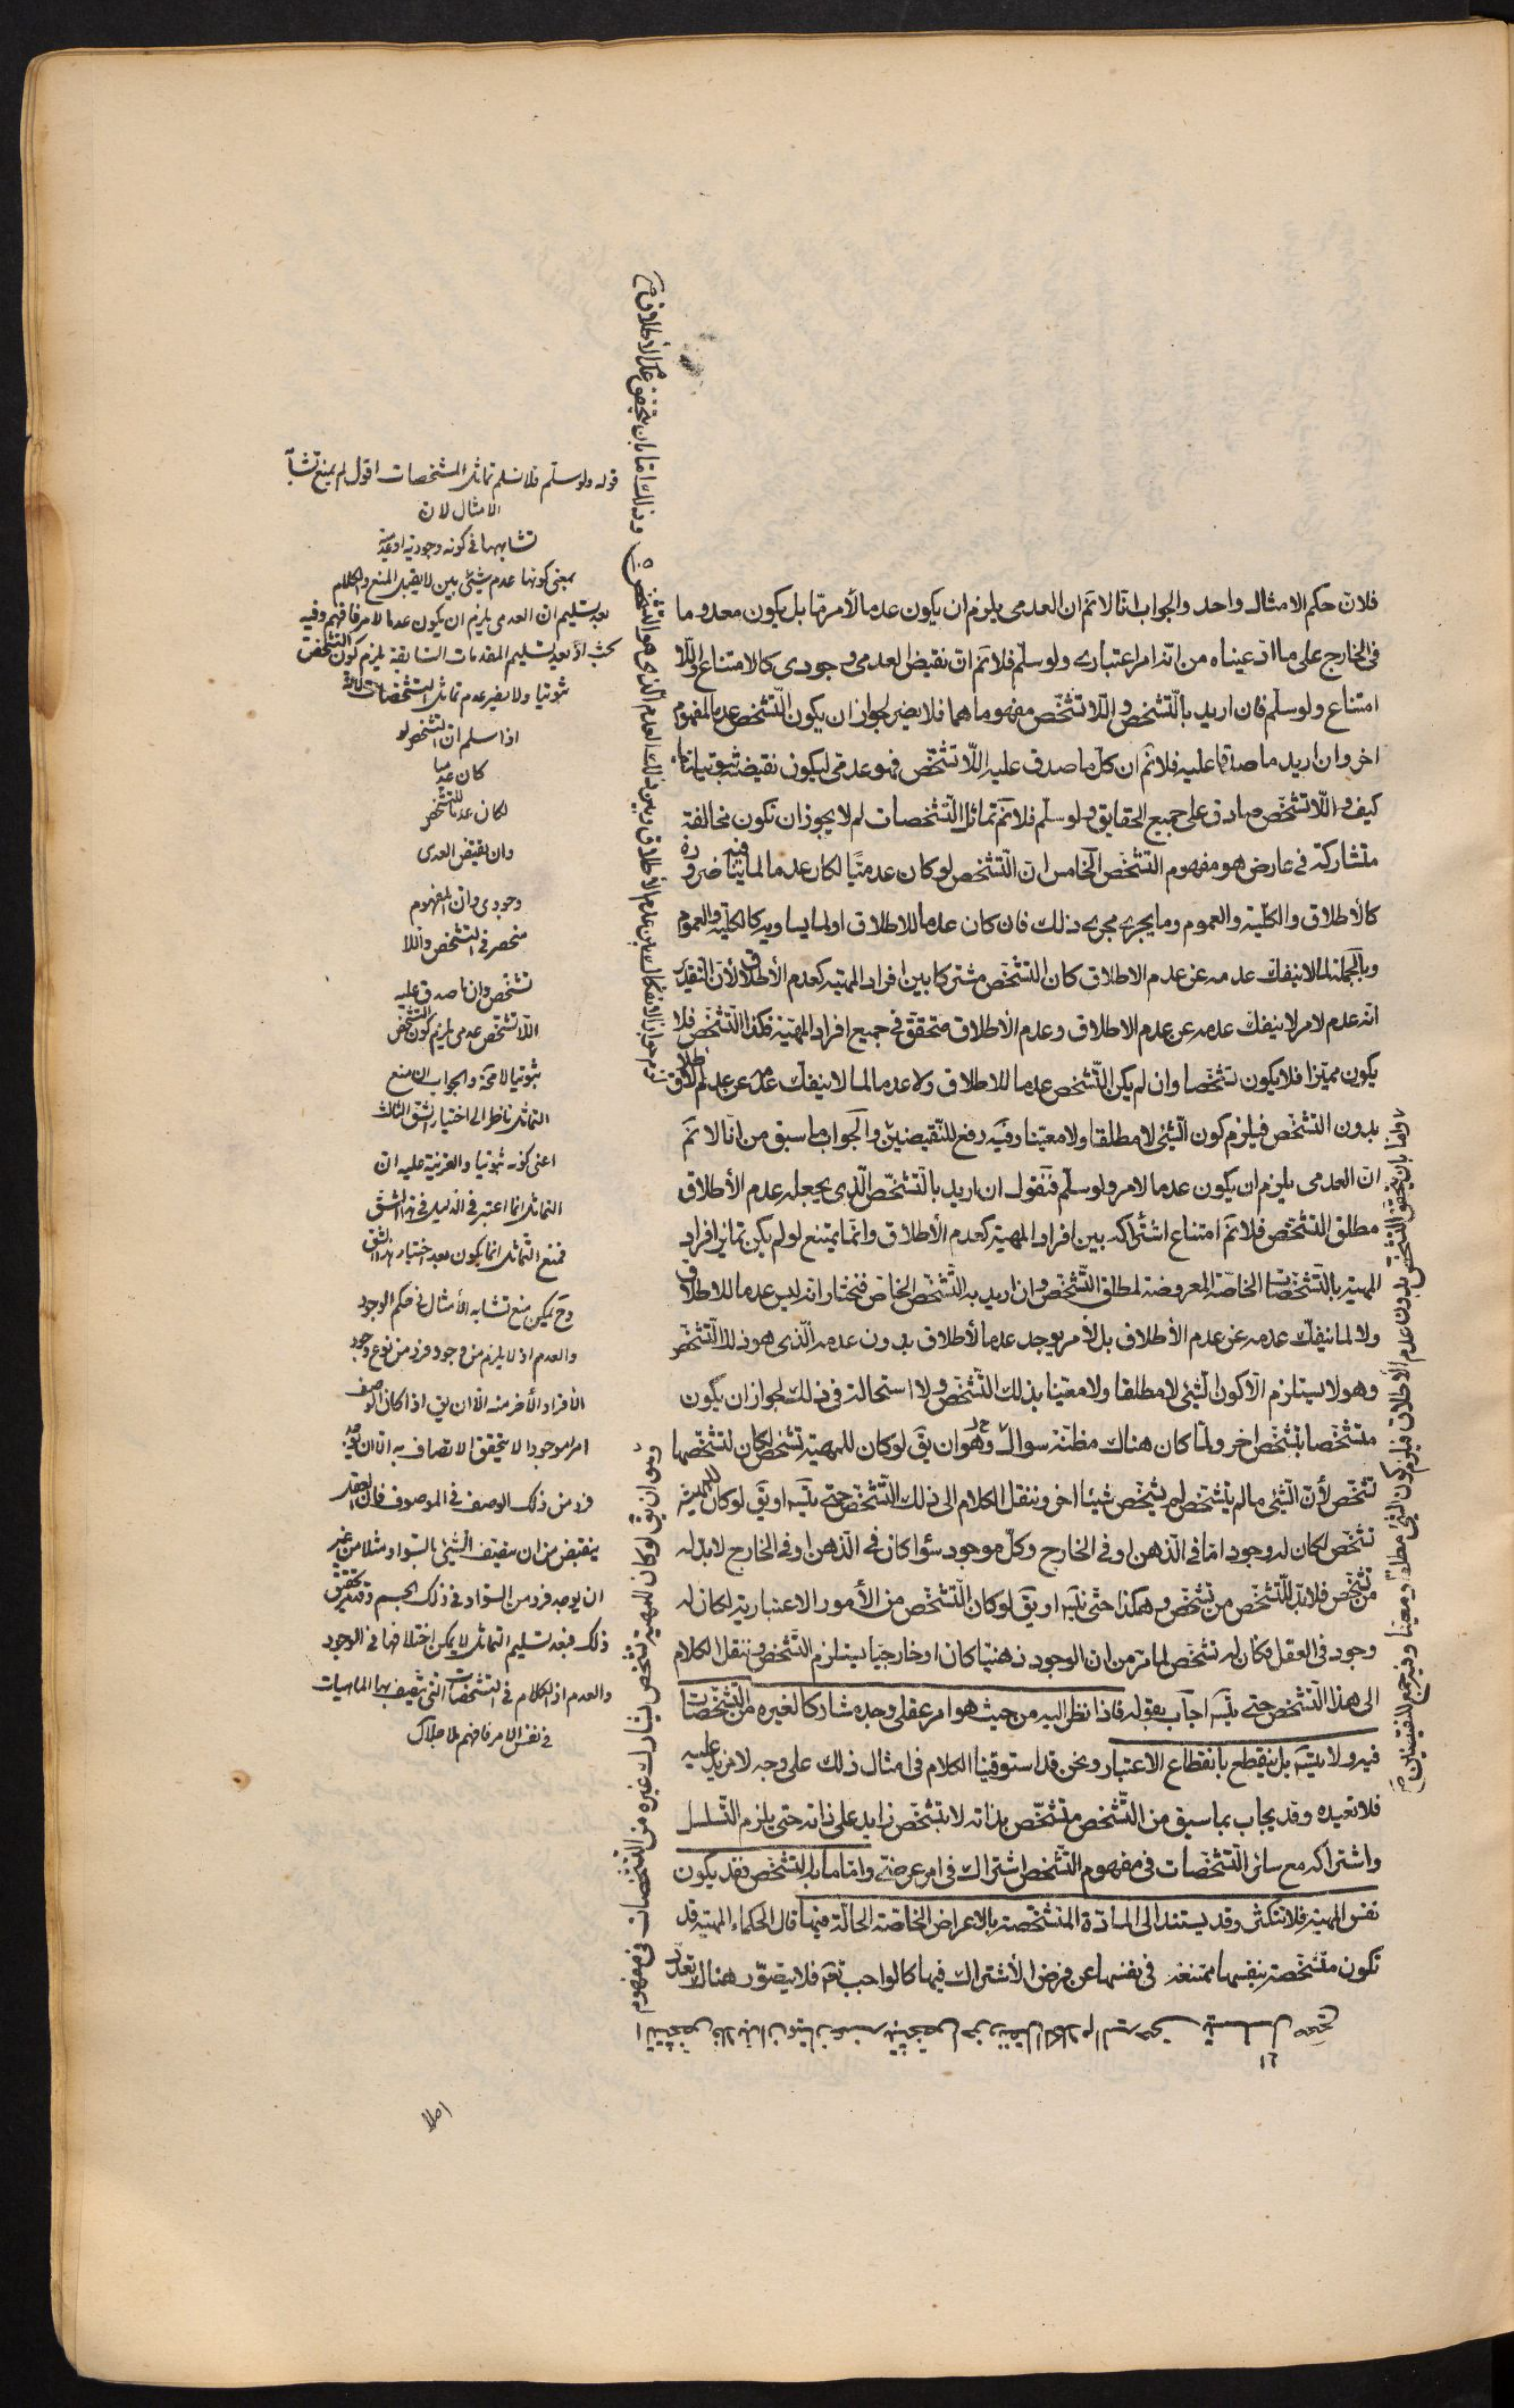 فلان حكم الامثال واحد والجواب انا لا نم ان العدمى يلزم ان يكون عدما لأمر مّا بل يكون معدوما
فى الخارج على ما ادعيناه من انه امر اعتبارى ولو سلّم فلا نم ان نقيض العدمى وجودى كالامتناع واللّا
امتناع ولو سلّم فان اريد بالتّشخص واللّا تشخّص مفهوماهما فلا يضر لجواز ان يكون التّشخص عدما لمفهوم
اخر وان اريد ما صدقا عليه فلا نم ان كل ما صدق عليه اللّا تشخّص فهو عدمى ليكون نقيضه ثبوتيا
كيف واللّا تشخّص صادق على جميع الحقايق ولو سلّم فلا نم تماثل التّشخصات لم لا يجوز ان تكون متخالفة
متشاركة فى عارض هو مفهوم التشخّص الخامس ان التّشخص لو كان عدميّا لكان عدما لما ينافيه ضرورة
كالأطلاق والكلّية والعموم وما يجرى مجرى ذلك فان كان عدما للاطلاق او لما يساويه كالكلّية والعموم
وبالجملة لما لا ينفك عدمه عن عدم الاطلاق كان التشخّص مشتركا بين افراد المهيّة كعدم الأطلاق لأن التقدير
انّه عدم لامر لا ينفك عدمه عن عدم الاطلاق وعدم الأطلاق متحقق فى جميع افراد المهيّة فكذا التّشخّص فلا
يكون مميّزا فلا يكون تشخّصا وان لم يكن التّشخص عدما للاطلاق ولا عدما لما لا ينفك عدمه عن عدم الاطلاق
بدون التشخّص فيلزم كون الشئ لا مطلقا ولا معيّنا وفيه رفع للنّقيضين والجواب ما سبق من انّا لا نم
ان العدمى يلزم ان يكون عدما لامر ولو سلّم فنقول ان اريد بالتّشخّص الّذى يجعله عدم الأطلاق
مطلق التشخّص فلا نم امتناع اشتراكه بين افراد المهيّة كعدم الأطلاق وانّما يمتنع لو لم يكن تمايز افراد
المهيّة بالتّشخّصات الخاصّة المعروضة لمطلق التّشخّص وان اريد به التّشخّص الخاصّ فنختار انه ليس عدما للاطلاق
ولا لما ينفك عدمه عن عدم الأطلاق بل لأمر يوجد عدما لأطلاق بدون عدمه الّذى هو ذلك التّشخّص
وهو لا يستلزم الّا كون الشئ لا مطلقا ولا معيّنا بذلك التّشخّص ولا استحالة فى ذلك لجواز ان يكون
متشخّصا بتشخّص اخر ولمّا كان هناك مظنّة سؤال وهو ان يق لو كان للمهيّة تشخّص لكان لتشخّصها
تشخّص لأن الشئ ما لم يتشخّص لم يشخّص شيئا اخر وننقل الكلام الى ذلك التّشخّص حتى يتس او يق لو كان للمهيّة
تشخّص لكان له وجود امّا فى الذّهن او فى الخارج وكلّ موجود سواء كان فى الذّهن او فى الخارج لا بدّ له
من تشخّص فلا بدّ للتّشخّص من تشخّص وهكذا حتّى يتس او يق لو كان التّشخّص من الأمور الاعتبارية لكان له
وجود فى العقل فكان له تشخّص لما مرّ من ان الوجود ذهنيّا كان او خارجيّا يستلزم التّشخّص وننقل الكلام
الى هذا التّشخص حتى يتس اجاب بقوله فاذا نظر اليه من حيث هو امر عقلى وجده مشاركا لغيره من التّشخّصات
فيه ولا يتس بل ينقطع بانقطاع الاعتبار ونحن قد استوفينا الكلام فى امثال ذلك على وجه لا مزيد عليه
فلا نعيده وقد يجاب بما سبق من التّشخص متشخّص بذاته لا بتشخّص زايد على ذاته حتى يلزم التّسلسل
واشتراكه مع سائر التّشخّصات فى مفهوم التّشخّص اشتراك فى امر عرضى وامّا ما به التّشخّص فقد يكون
نفس المهيّة فلا تتكثر وقد يستند الى المادّة المتشخّصة بالاعراض الخاصّة الحالّة فيها قال الحكماء المهيّة قد
تكون متشخّصة بنفسها ممتنعة فى نفسها عن فرض الأشتراك فيها كالواجب تعم فلا يتصوّر هناك تعدّد
وذلك امّا بان يتحقق عدم الأطلاق
وامّا بان يتحقق التشخّص بدون عدم الأطلاق فيلزم كون الشئ مطلقا ومعيّنا وفيه جمع للنقيضين
وهو ان يق لو كان للمهيّة تشخص يشارك غيره من التّشخّصات فى مفهوم
قوله ولو سلّم فلا نسلم تماثل التشخصات اقول لم يمنع تشابه
الامثال لان
تشابهها فى كونه وجودية او عدمية
بمعنى كونها عدم شئ بين لا يقبل المنع والكلام
بعد تسليم ان العدمى يلزم ان يكون عدما لامر فافهم وفيه
بحث اذ بعد تسليم المقدمات السابقة يلزم كون التشخّص
ثبوتيا ولا يضر عدم تماثل التشخصات لانه
اذا سلم ان التشخص لو
كان عدميا
لكان عدما للتشخص
وان نقيض العدمى
وجودى وان المفهوم
منحصر فى التشخص واللا
تشخص وان ما صدق عليه
اللا تشخّص عدمى يلزم كون التشخص
ثبوتيا لا محة والجواب ان منع
التماثل ناظر الى اختيار الشق الثالث
اعنى كونه ثبوتيا والقرينة عليه ان
التماثل انما اعتبر فى الدليل فى هذا الشق
فمنع التّماثل انما يكون بعد اختيار هذا الشق
وح يمكن منع تشابه الأمثال فى حكم الوجود
والعدم اذ لا يلزم من وجود فرد من نوع وجود
الأفراد الأخر منه الّا ان يق اذا كان الوصف
امرا موجودا لا يتحقق الاتصاف به الا ان يوجد
فرد من ذلك الوصف فى الموصوف فان العقل
ينقبض من ان يتصف الشئ بالسّواد مثلا من غير
ان يوجد فرد من السّواد فى ذلك الجسم وتقدير تحقق
ذلك فبعد تسليم التماثل لا يمكن اختلافها فى الوجود
والعدم اذ الكلام فى التشخصات التى يتصف بها الماهيات
فى نفس الامر فافهم